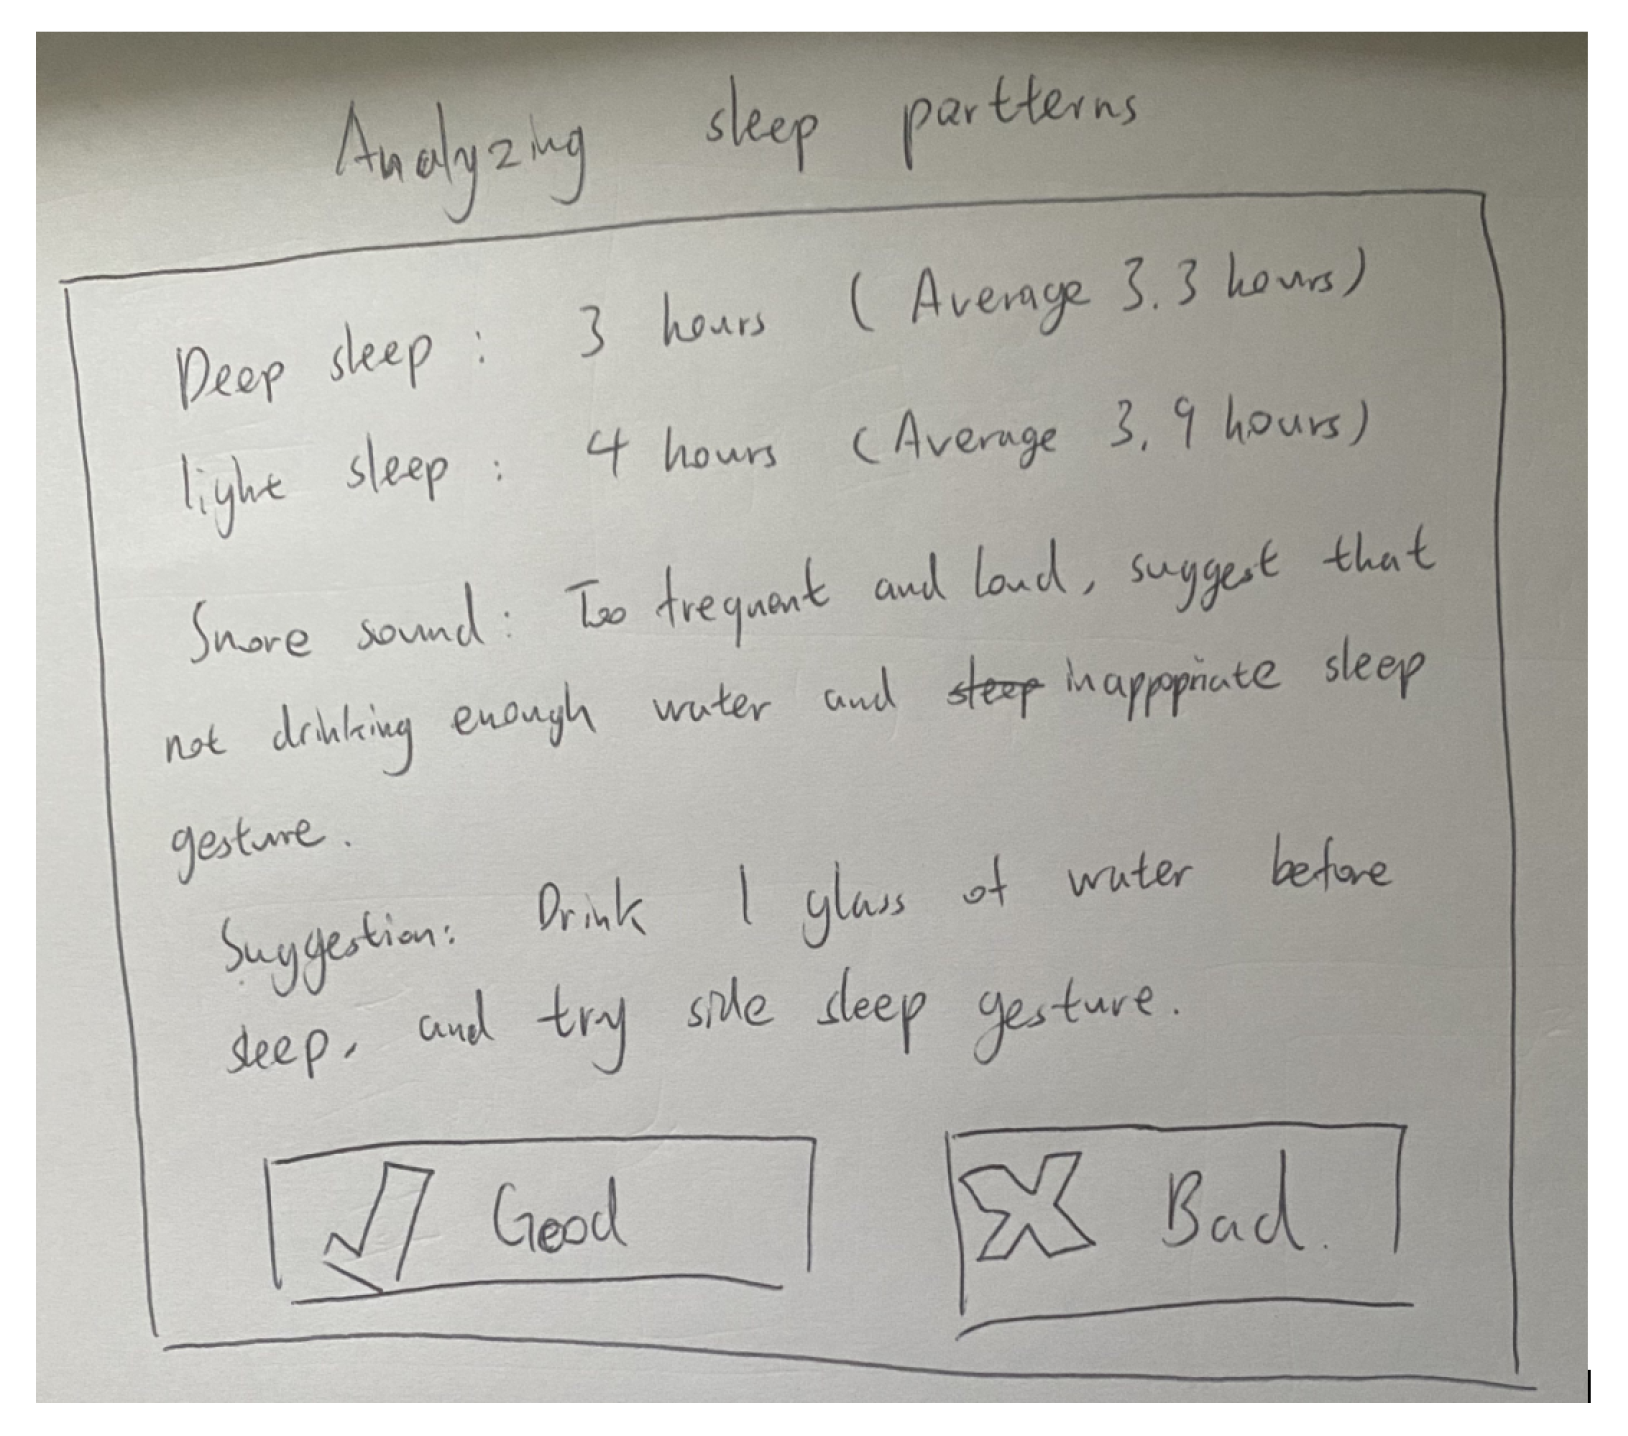 Analyzing sleep partterns
Deep sleep : 3 hours ( Average 3.3 hours)
light sleep : 4 hours (Average 3.9 hours)
Snore sound : Too frequent and loud, suggest that
not drinking enough water and sleep inappopriate sleep
gesture.
Suggestion: Drink 1 glass of water before
sleep, and try side sleep gesture.
Good
Bad.